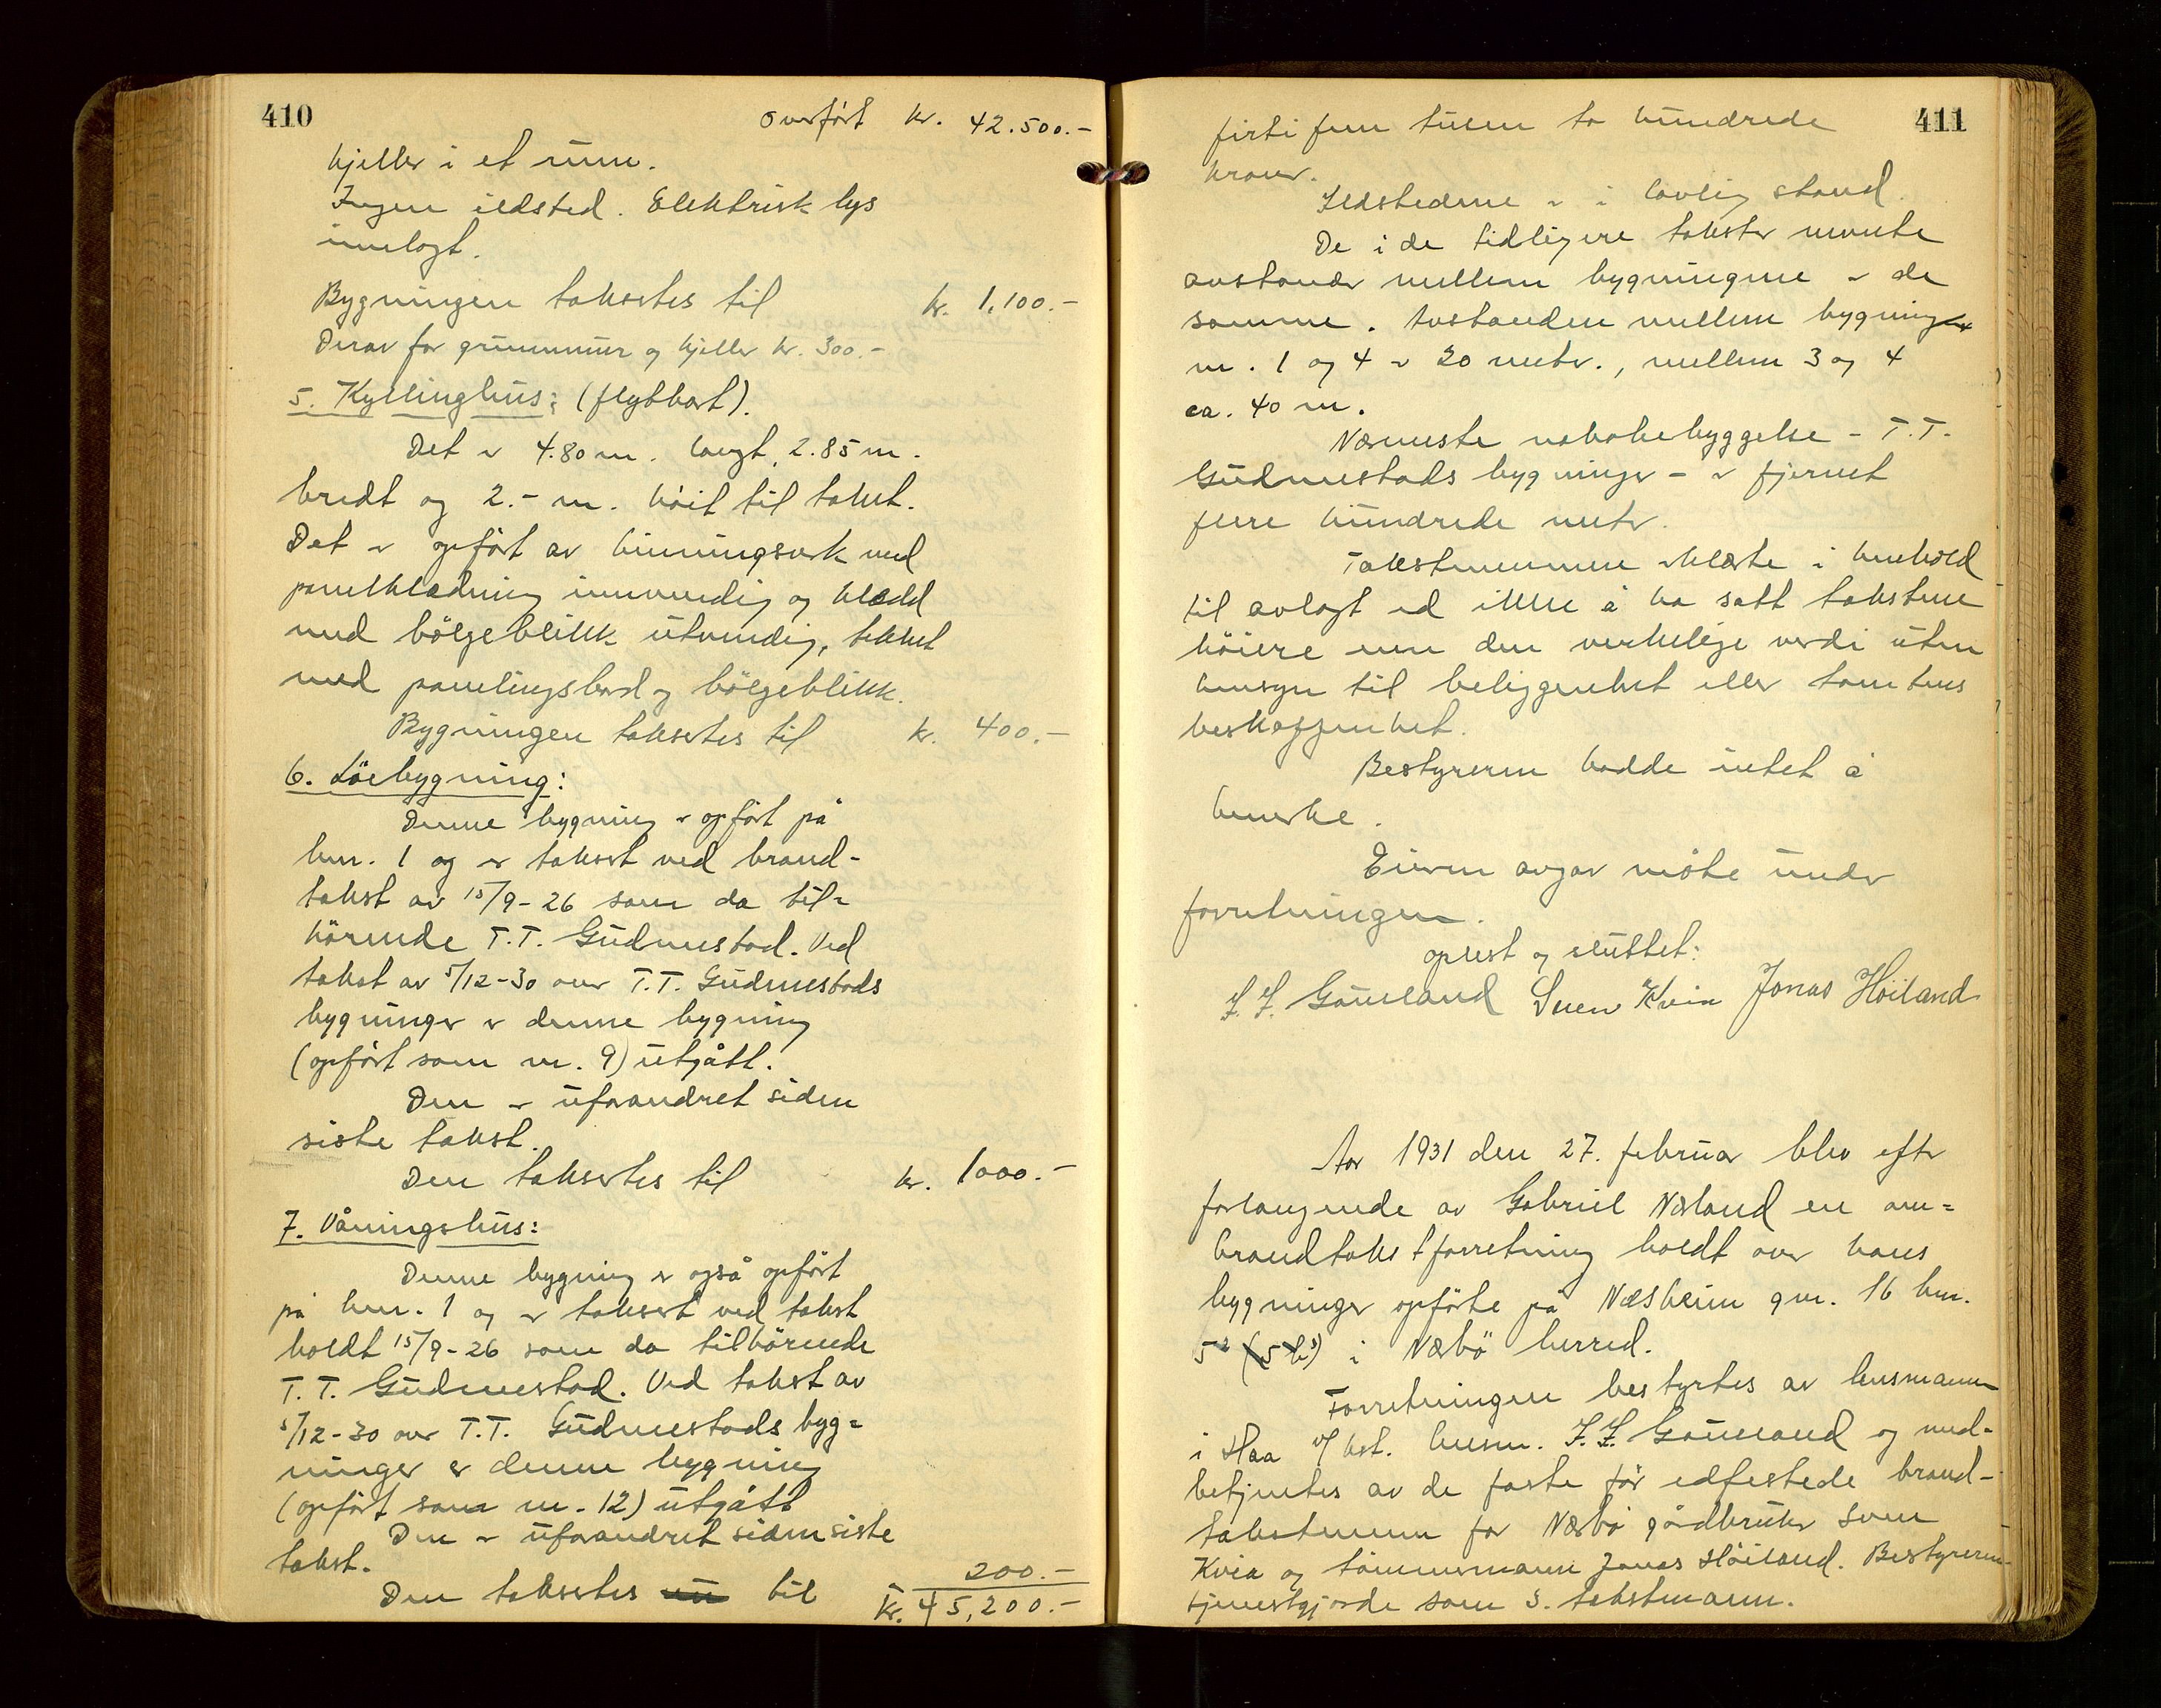 410
overført kr. 42.500.-
kjeller i et rum.
Ingen ildsted. Elektrisk lys
innlagt.
Bygningen takseres til kr. 1,100.-
Derav for grunnmur og kjeller kr. 300.-
5. Kyllinghus: (flytbart).
Det er 4.80 m. langt, 2.85 m.
bredt og 2.- m. höit til taket.
Det er opført av binningsverk med
panelklædning innvendig og klædd
med bölgeblikk utvendig, tekket
med panelingsbord og bölgeblikk.
Bygningen takseres til kr. 400.-
6. Löebygning:
Denne bygning er opført på
bnr. 1 og er taksert ved brand-
takst av 15/9-26 som da til=
hörende T.T. Gudmestad. Ved
takst av 5/12-30 over T.T. Gudmestads
bygninger er denne bygning
(opført som nr. 9) utgått.
Den er uforandret siden
siste takst.
Den takseres til kr. 1000.-
7. Våningshus:
Denne bygning er også opført
på bnr. 1 og er taksert ved takst
holdt 15/9-26 som da tilhörende
T.T. Gudmestad. Ved takst av
5/12-30 over T.T. Gudmestads byg=
ninger er denne bygning
(opført som nr. 12) utgått
Den er uforandret siden siste
takst.
Den takseres til 200.-
kr. 45,200.-
411
firti fem tusen to hundrede
kroner.
Ildstedene er i lovlig stand.
De i de tidligere takster nevnte
avstander mellem bygningene er de
samme. Avstanden mellem bygning
nr. 1 og 4 er 20 meter., mellem 3 og 4
ca. 40 m.
Nærmeste nabobebyggelse - T.T.
Gudmestads bygninger - er fjernet
flere hundrede meter.
Takstmennene erklærte i henhold
til avlagt ed ikke å ha satt takstene
höiere enn den verkelige verdi uten
hensyn til beliggenhet eller tomtens
beskaffenhet.
Bestyreren hadde intet å
bemerke.
Eieren avgav möte under
forretningen.
oplest og sluttet:
J. J. Gauseland Sven Kvia Jonas Höiland
Aar 1931 den 27. februar blev efter
forlangende av Gabriel Nærland en om=
brandtakstforretning holdt over hans
bygninger opförte på Næsheim gnr. 16 bnr.
5² i Nærbö herred.
Forretningen bestyrtes av lensmannen
i Haa v/ bst. lensm. J. J. Gauseland og med-
betjentes av de faste för edfestede brand-
takstmenn for Nærbö gårdbruker Sven
Kvia og tömmermann Jonas Höiland. Bestyreren
tjenestgjorde som 3. takstmann.